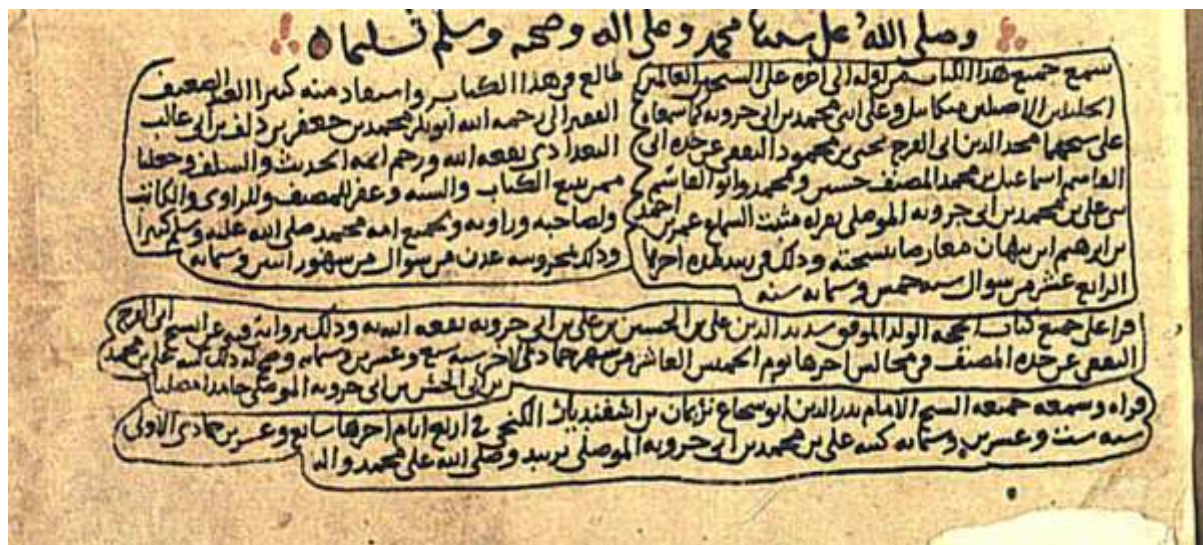 وصلى الله على سيدنا محمد وعلى اله وصحبه وسلم تسليما
سمع جميع هذا الكتاب من اوله الى اخره على الشيخين العالمين
الجليلين الاصيلين ميكائيل وعلي ابني محمد بن ابي حرويه كما سمعاه
على شيخهما مجد الدين ابي الفرج يحيى بن محمود الثقفي عن جده ابي
القاسم اسماعيل بن محمد المصنف حسين ومحمد وابو القاسم
بني علي بن محمد بن ابي حرويه الموصلي بقراه مثبت السماع عمر بن احمد
بن ابرهيم ابن بهان معارضا بنسخته وذلك في مدة اخرها
الرابع عشر من شوال سنه خمس وستمايه سنه
طالع في هذا الكتاب واستفاد منه كثيرا العبد الضعيف
الفقير الى رحمه الله ابو بكر محمد بن جعفر بن دلف بن ابي غالب
البغدادي نفعه الله ورحم ايمه الحديث والسلف وجعلنا
ممن يتبع الكتاب والسنه وغفر للمصنف وللراوي والكاتب
ولصاحبه وراويه ولجميع امه محمد صلى الله عليه وسلم كثيرا
وذلك بمحروسه عدن من شوال من شهور اثنين وستمايه
قرا علي جميع كتاب الحجه الولد الموفق سديد الدين علي بن الحسين بن علي بن ابي حرويه نفعه الله به وذلك بروايتي فيه عن الشيخ ابي الفرج
الثقفي عن جده المصنف في مجالس اخرها يوم الخميس العاشر من شهر جمادى الاخر سنه سبع وعشرين وستمايه وصح له ذلك كتبه علي بن محمد
بن ابي الحسن بن ابي حرويه الموصلي حامدا مصليا
قراه وسمعه جميعه الشيخ الامام بدر الدين ابو شجاع بن اسفنديار الكنجي في اربع ايام اخرها سابع وعشرين جمادى الاولى
سنه ست وعشرين وستمايه كتبه علي بن محمد بن ابي حرويه الموصلي بزبيد وصلى الله على محمد واله